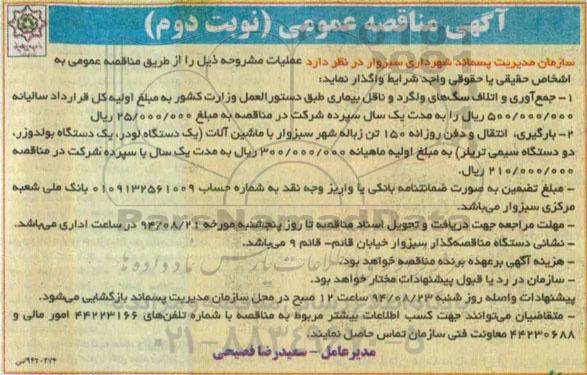 آگهی مناقصه عمومی (نوبت دوم)
سازمان مدیریت پسماند شهرداری سبزوار در نظر دارد عملیات مشروحه ذیل را از طریق مناقصه عمومی به
اشخاص حقیقی یا حقوقی واجد شرایط واگذار نماید:
۱- جمع‌آوری و اتلاف سگ‌های ولگرد و ناقل بیماری طبق دستورالعمل وزارت کشور به مبلغ اولیه کل قرارداد سالیانه
۵۰۰/۰۰۰/۰۰۰ ریال را به مدت یک سال سپرده شرکت در مناقصه به مبلغ ۲۵/۰۰۰/۰۰۰ ریال
۲- بارگیری، انتقال و دفن روزانه ۱۵۰ تن زباله شهر سبزوار با ماشین آلات (یک دستگاه لودر، یک دستگاه بولدوزر،
دو دستگاه سیمی تریلر) به مبلغ اولیه ماهیانه ۳۰۰/۰۰۰/۰۰۰ ریال به مدت یک سال با سپرده شرکت در مناقصه
۲۱۰/۰۰۰/۰۰۰ ریال.
- مبلغ تضمین به صورت ضمانتنامه بانکی یا واریز وجه نقد به شماره حساب ۰۱۰۹۱۳۲۵۶۱۰۰۹ بانک ملی شعبه
مرکزی سبزوار می‌باشد.
- مهلت مراجعه جهت دریافت و تحویل اسناد مناقصه تا روز پنجشنبه مورخه ۹۴/۰۸/۲۱ در ساعت اداری می‌باشد.
- نشانی دستگاه مناقصه‌گذار سبزوار خیابان قائم- قائم ۹ می‌باشد.
- هزینه آگهی برعهده برنده مناقصه خواهد بود.
- سازمان در رد یا قبول پیشنهادات مختار خواهد بود.
پیشنهادات واصله روز شنبه ۹۴/۰۸/۲۳ ساعت ۱۲ صبح در محل سازمان مدیریت پسماند بازگشایی می‌شود.
- متقاضیان می‌توانند جهت کسب اطلاعات بیشتر مربوط به مناقصه با شماره تلفن‌های ۴۴۲۲۳۱۶۶ امور مالی و
۴۴۲۳۰۶۸۸ معاونت فنی سازمان تماس حاصل نمایند.
مدیرعامل - سعیدرضا فصیحی
۹۴۲۰۴۷۴/س
ParsNamadData